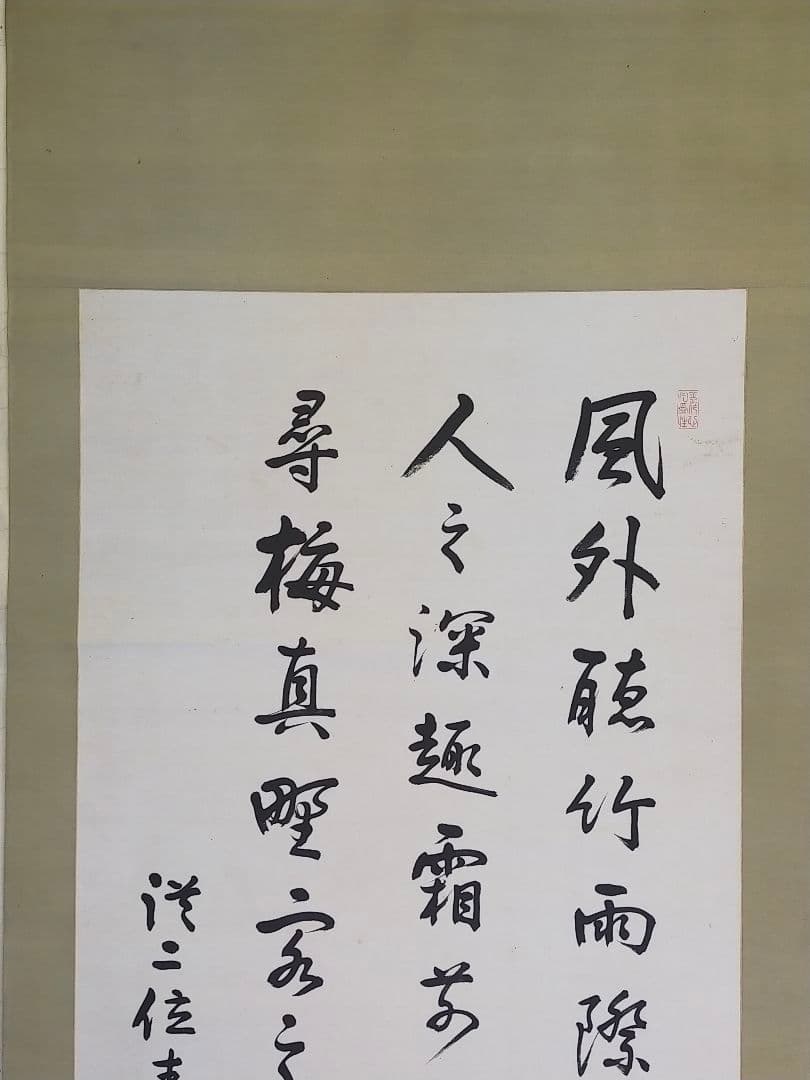 風外聴竹雨際
人之深趣霜前
尋梅真野客之
従二位